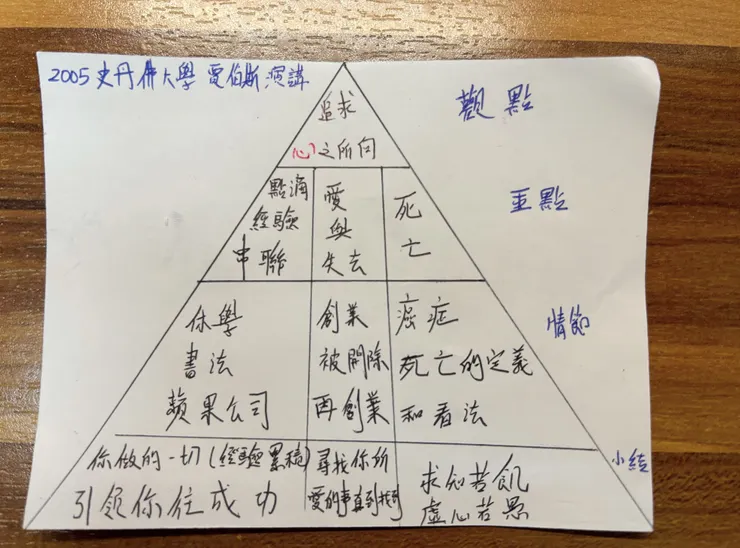 2005 史丹佛大學 賈伯斯演講
觀點
追求
心之所向
重點
點滴
經驗
串聯
愛
與
失去
死
亡
情節
休學
書法
蘋果公司
創業
被開除
再創業
癌症
死亡的定義
和看法
小結
你做的一切(經驗累積)
引領你往成功
尋找你所
愛的事直到找到
求知若飢
虛心若愚